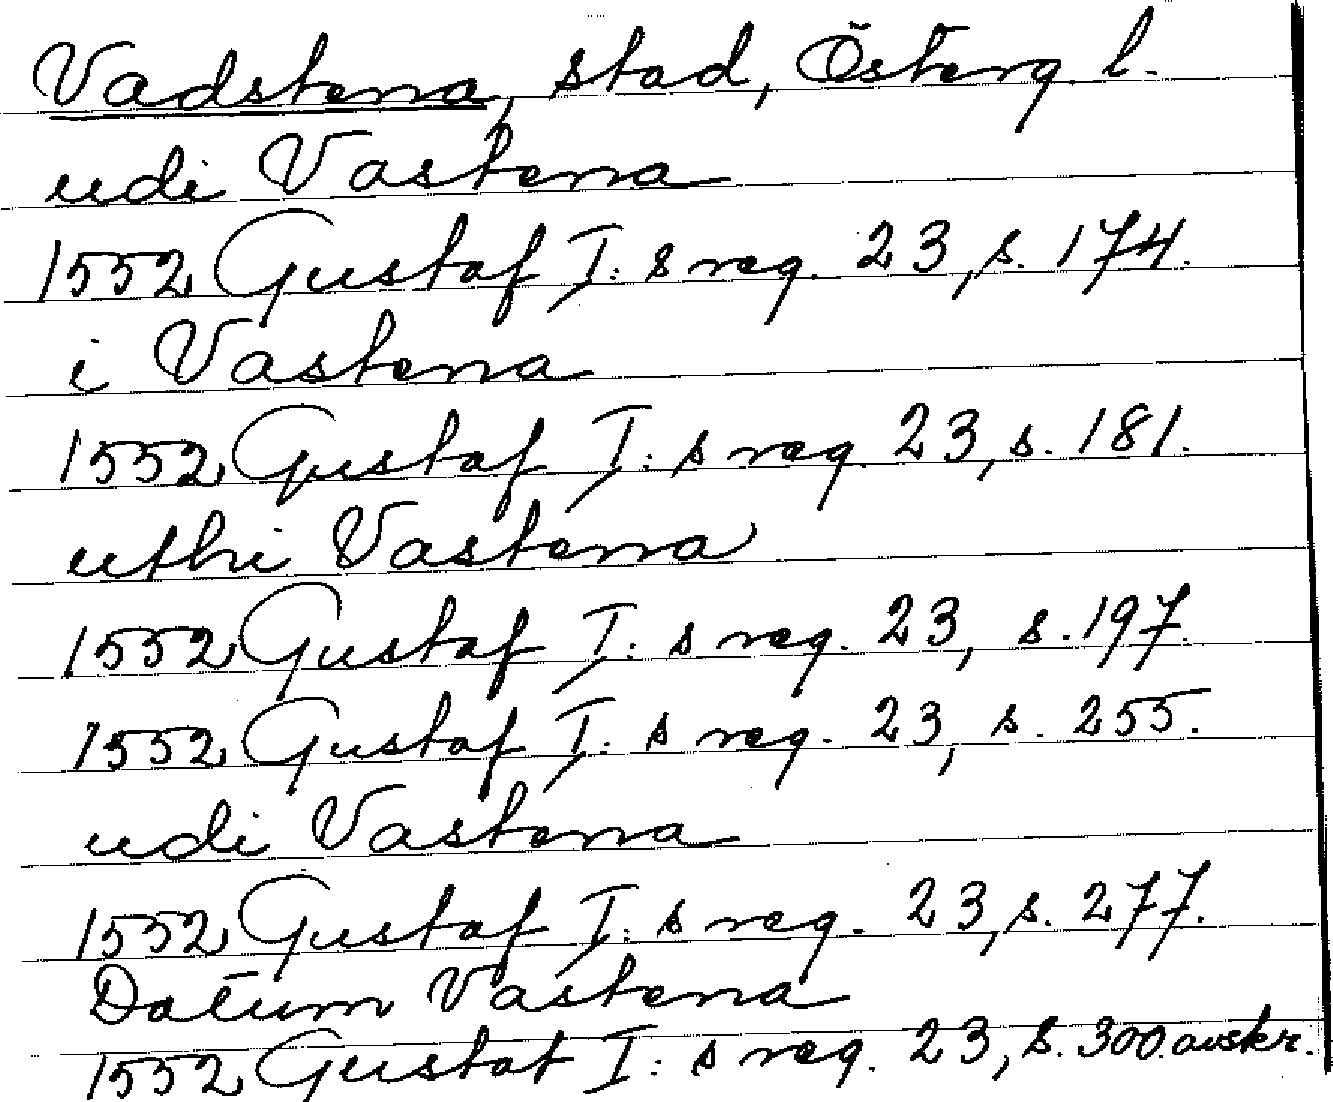 Vadstena, stad, Österg l.
udi Vastena
1552 Gustaf I: s reg. 23, s. 174.
i Vastena
1552 Gustaf I: s reg. 23, s. 181.
uthi Vastena
1552 Gustaf I: s reg. 23, s. 197.
1552 Gustaf I: s reg. 23, s. 255.
udi Vastena
1552 Gustaf I: s reg. 23, s. 277.
Datum Vastena
1552 Gustaf I: s reg. 23, s. 300. avskr.